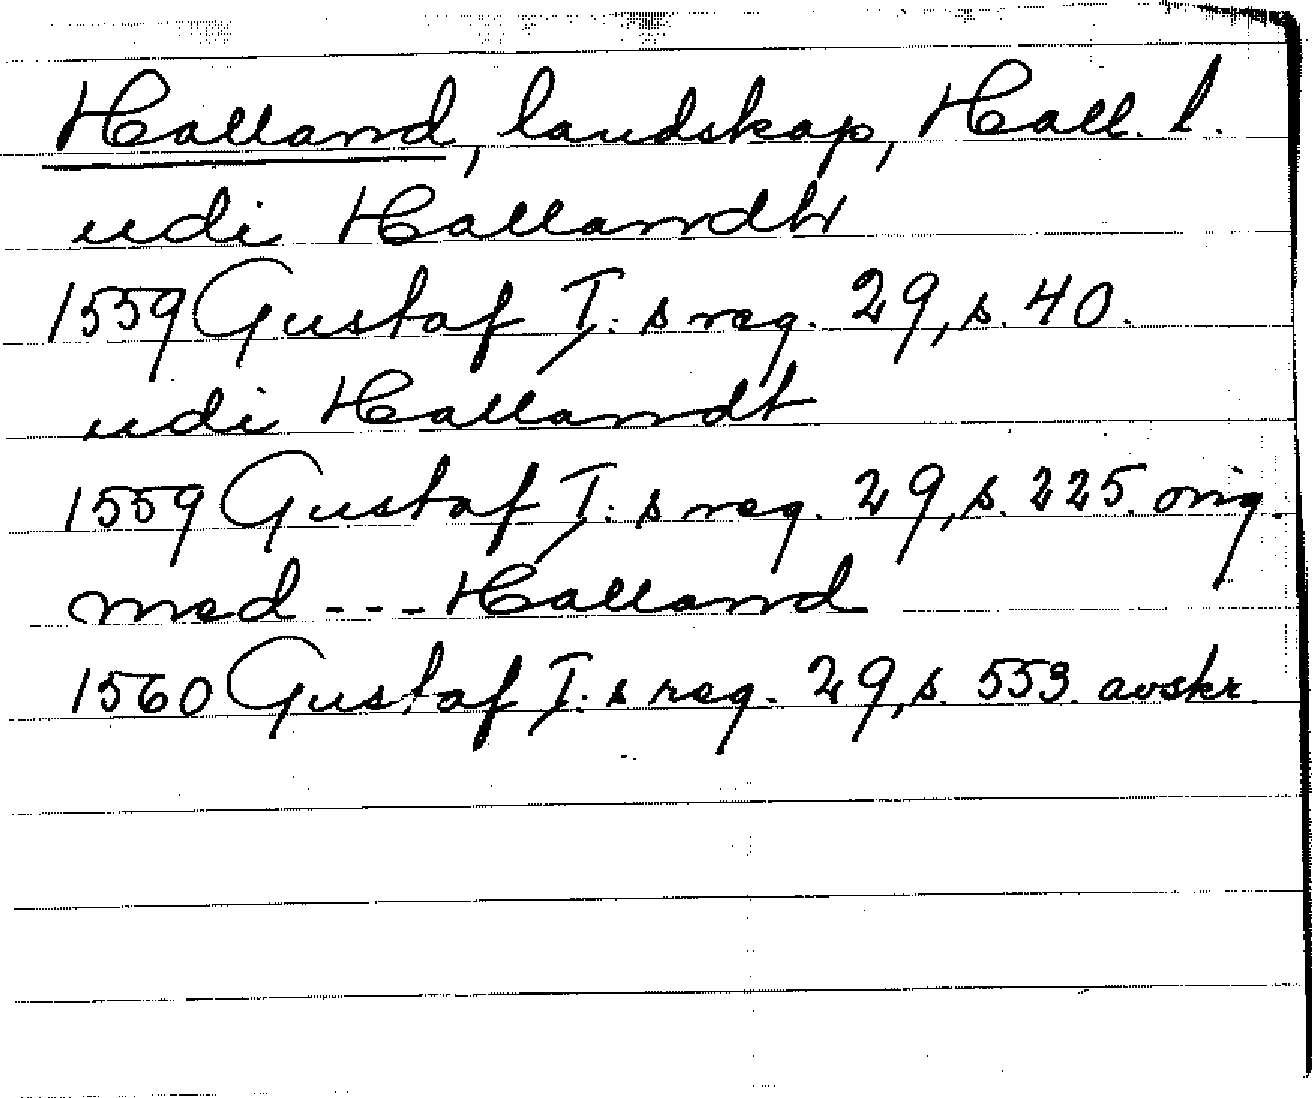 Halland, landskap, Hall. l.
udi Hallandh
1559 Gustaf I:s reg. 29, s. 40.
udi Hallandt
1559 Gustaf I:s reg. 29, s. 225. orig.
med --- Halland
1560 Gustaf I:s reg. 29, s. 553. avskr